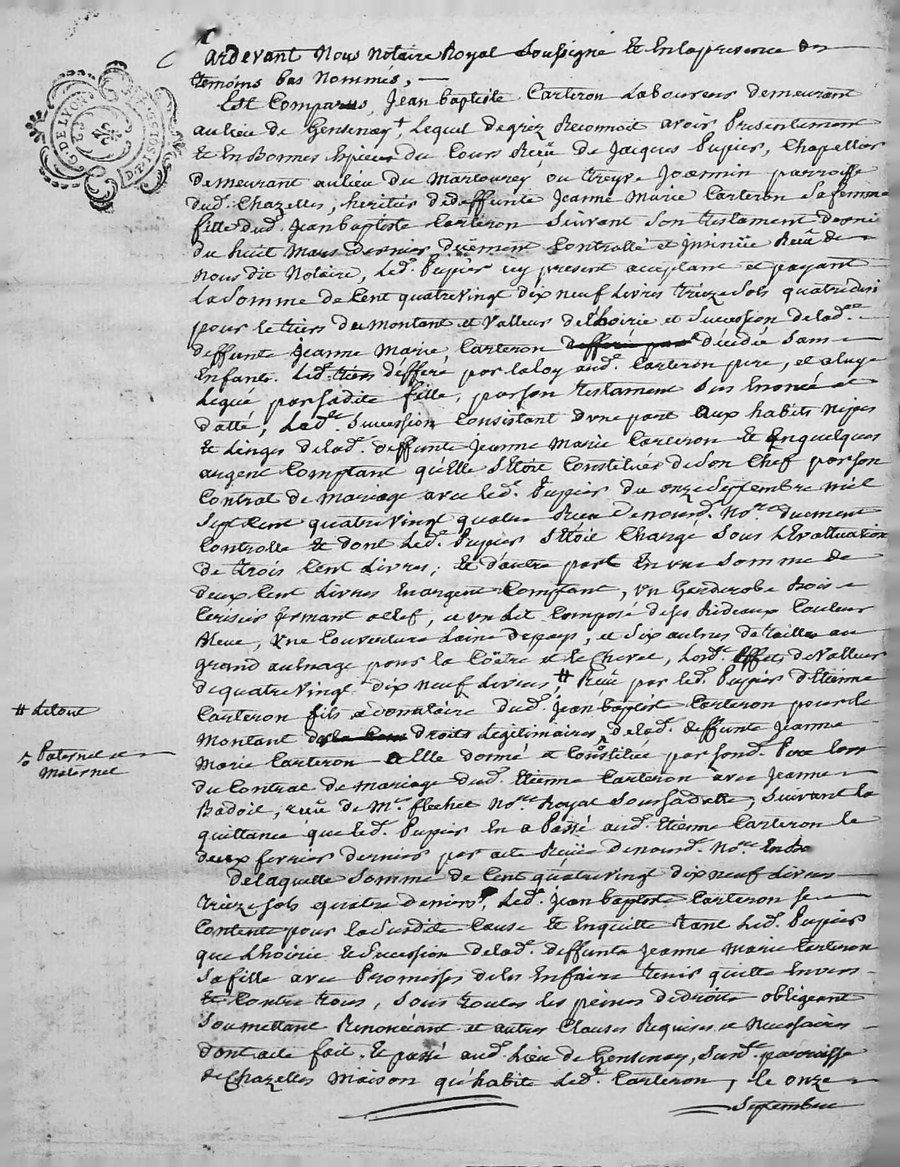 G. DE LYON
Pardevant Nous Notaire Royal Soussigné Et En la presence des
temoins bas Nommés,
Est Comparus, Jean baptiste Carteron Laboureur demeurant
au lieu de Gensenay, Lequel degrez Reconnoit avoir Presentement
Et En Bonnes Especes du Cours Reçû de Jacques Pupier, Chapellier
demeurant au lieu du Martourey ou treyve Joannin parroisse
dud. Chazelles, heritier de deffunte Jeanne Marie Carteron Sa femme
fille dud. Jean Baptiste Carteron Suivant Son testament
du huit Mars dernier düement Controllé et Reçû de
Nous dit Notaire, Led. Pupier icy present acceptant et payant
La Somme de Cent quatre vingt dix neuf Livres treize Sols quatre
pour le tiers du montant et Valleur de Lhoirie et Succession de lad.
deffunte Jeanne Marie Carteron décédée Sans
Enfants. Led. tiers deffere par la loy aud. Carteron pere, et a luy
Legué par sadite fille, par son testament Sus Enoncé et
datté, Lad. Succession Consistant d'une part aux habits nipes
Et Linges de lad. deffunte Jeanne Marie Carteron Et En quelques
argent Comptant qu'Elle S'Etoit Constitués de Son Chef par son
Contrat de mariage avec led. Pupier du onze Septembre mil
Sept Cent quatre vingt quatre Reçu De nousd. No.re düement
Controlle Et dont Led. Pupier S'Etoit Chargé Sous L'Evalluation
de trois Cent Livres; Et d'autre part En une Somme de
deux Cent Livres En argent Comptant, un Garderobe Bois
Cerisier fermant a clef, et un Lit Composé de ses Rideaux Couleur
Bleue, Une Couverture Laine de pays, et Six autres de toilles au
grand aulnage pour la Coëtre et le Chevet, Lesd. Effets de Valleur
de quatre vingt dix neuf Livres # Reçu par led. Pupier d'Etienne
Carteron fils donataire dud. Jean Baptiste Carteron pour le
# Le tout
Montant droits Legitimaires de lad. deffunte Jeanne
Paternel et
Maternel
Marie Carteron a Elle donné et Constitué par sond. Pere lors
du Contrat de mariage dud. Etienne Carteron avec Jeanne
Badoil, reçû de Me. flechet No.re Royal Soussadatte, Suivant la
quittance que led. Pupier En a Passé aud. Etienne Carteron le
deux fevrier dernier par acte Reçüe de nousd. No.re
De laquelle Somme de Cent quatre vingt dix neuf Livres
treize Sols quatre deniers, Led. Jean Baptiste Carteron se
Contente pour la Susdite Cause Et En quitte tant Led. Pupier
que Lhoirie Et Succession de lad. deffunte Jeanne Marie Carteron
Sa fille avec Promesses de les En faire tenir quitte Envers
Et Contre tous, Sous toutes les peines de droits obligeant
Soumettant Renonceant et autres Clauses Requises et Necessaires
dont acte fait Et passé aud. Lieu de Gensenay, Susd. parroisse
de Chazelles Maison qu'habite Led. Carteron, le onze
Septembre